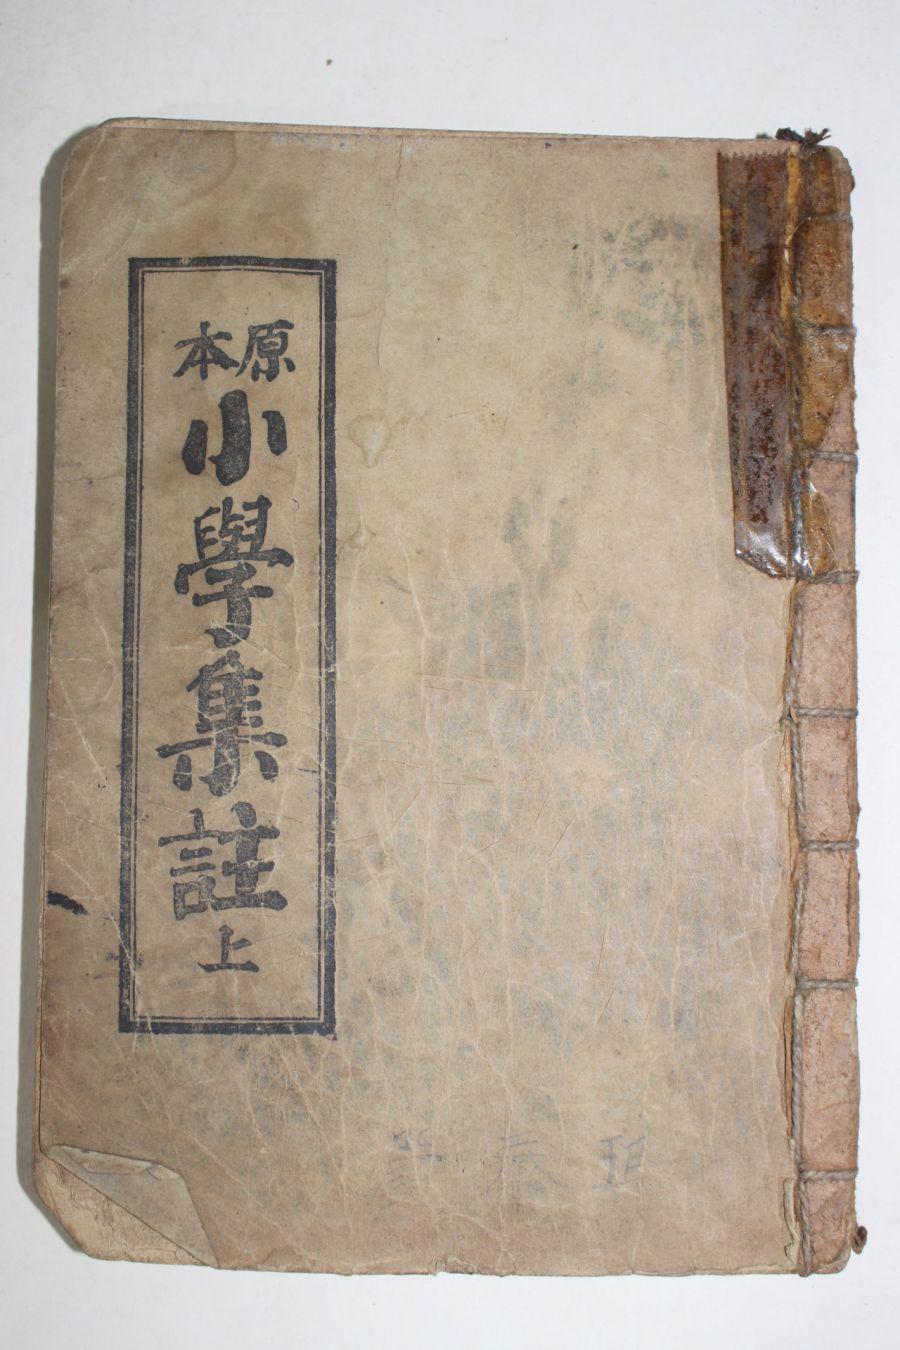 原本
小學集註 上